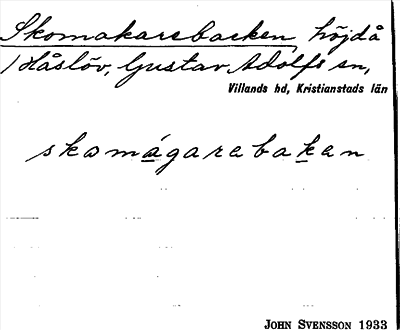 Skomakarebacken, höjdå
/ Håslöv, Gustav Adolfs sn,
Villands hd, Kristianstads län
skomágarebaken
JOHN SVENSSON 1933